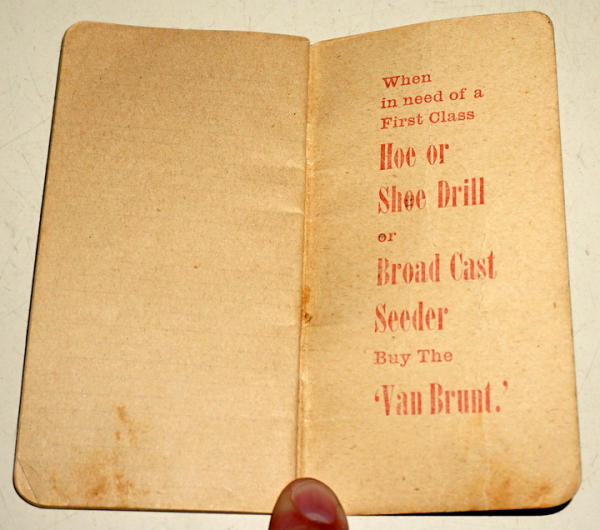 When
in need of a
First Class
Hoe or
Shoe Drill
or
Broad Cast
Seeder
Buy The
'Van Brunt.'